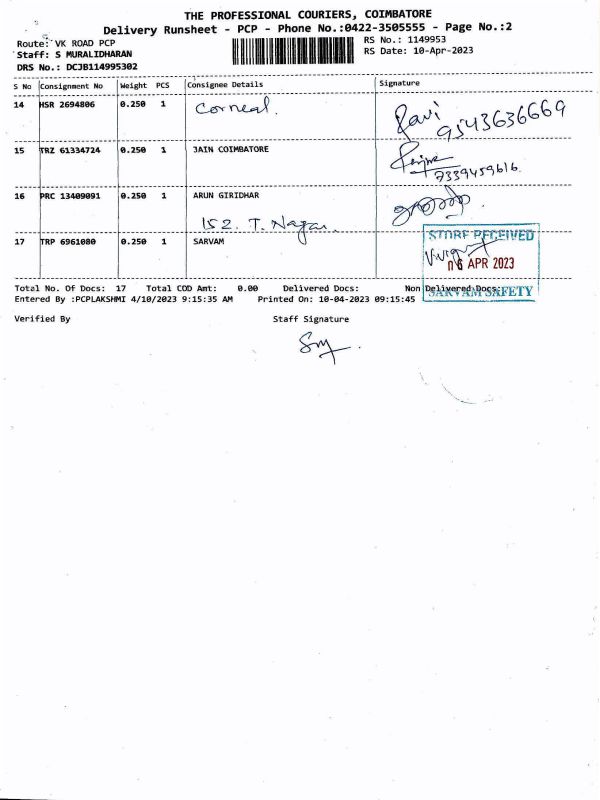 THE PROFESSIONAL COURIERS, COIMBATORE
Delivery Runsheet - PCP - Phone No.:0422-3505555 - Page No.:2
Route: VK ROAD PCP
RS No.: 1149953
Staff: S MURALIDHARAN
RS Date: 10-Apr-2023
DRS No.: DCJB114995302
S No Consignment No Weight PCS Consignee Details Signature
14 HSR 2694806 0.250 1 Corneal. Ravi
9543636669
15 TRZ 61334724 0.250 1 JAIN COIMBATORE
7339459616.
16 PRC 13409091 0.250 1 ARUN GIRIDHAR
152. T. Nagar.
17 TRP 6961080 0.250 1 SARVAM
STORE RECEIVED
06 APR 2023
SARVAM SAFETY
Total No. Of Docs: 17 Total COD Amt: 0.00 Delivered Docs: Non Delivered Docs:
Entered By :PCPLAKSHMI 4/10/2023 9:15:35 AM Printed On: 10-04-2023 09:15:45
Verified By Staff Signature